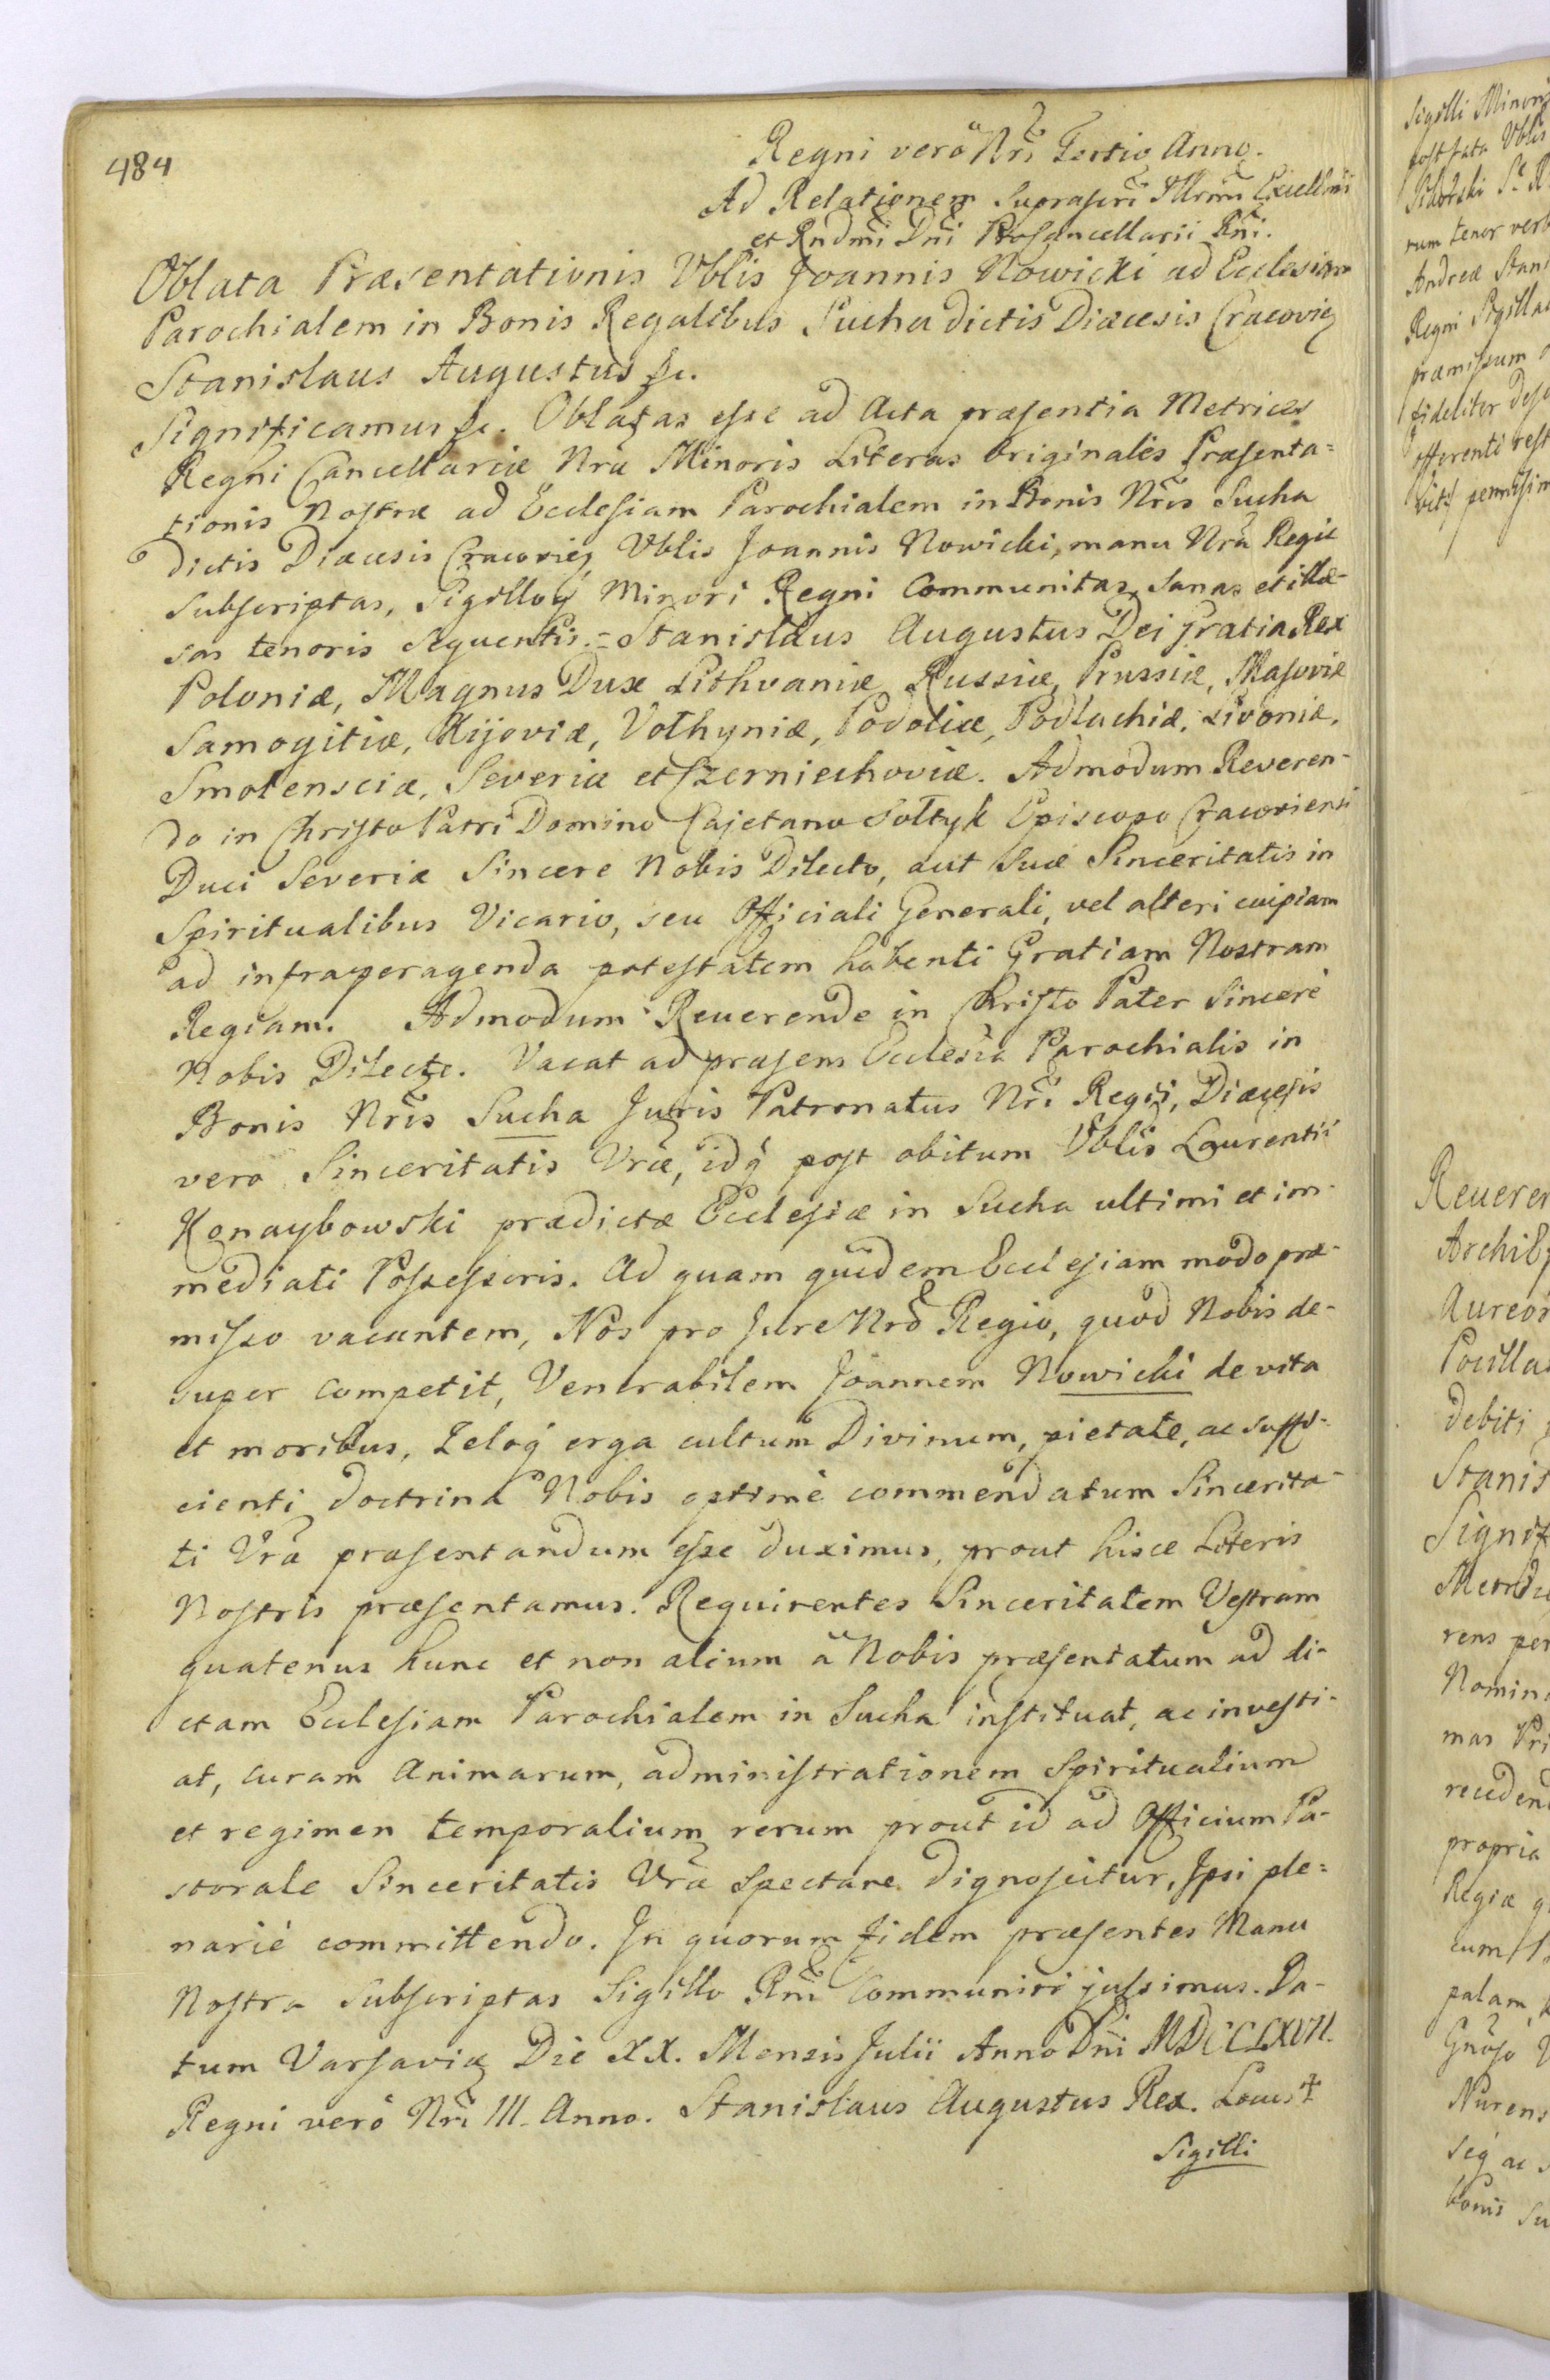 484
Regni verò Nri Tertio Anno.
Ad Relationem Suprascri Illrmi Excellmi
et Rndmi Dni ProCancellarii Rni.
Oblata Præsentationis Vblis Joannis Nowicki ad Ecclesiam
Parochialem in Bonis Regalibus Sucha dictis Diæcesis Cracovię
Stanislaus Augustus &c.
Significamus &c. Oblatas esse ad Acta præsentia Metrices
Regni Cancellariæ Nræ Minoris Literas Originales Præsenta=
tionis Nostræ ad Ecclesiam Parochialem in Bonis Nris Sucha
dictis Diæcesis Cracovię, Vblis Joannis Nowicki, manu Nra Regia
subscriptas, Sigilloq̃ Minori Regni Communitas, Sanas et illæ-
sas tenoris sequentis.= Stanislaus Augustus Dei gratia Rex
Poloniæ, Magnus Dux Lithvaniæ, Russiæ, Prussiæ, Masoviæ
Samogitiæ, Kijoviæ, Volhyniæ, Podoliæ, Podlachiæ, Livoniæ,
Smolensciæ, Severiæ et Czerniechoviæ. Admodum Reveren-
do in Christo Patri Domino Cajetano Sołtyk Episcopo Cracoviensi
Duci Severiæ Sincere Nobis Dilecto, aut Suæ Sinceritatis in
Spiritualibus Vicario, seu Officiali Generali, vel alteri cuipiam
ad infraperagenda potestatem habenti Gratiam Nostram
Regiam. Admodum Reverende in Christo Pater Sincerè
Nobis Dilecte. Vacat ad præsens Ecclesia Parochialis in
Bonis Nris Sucha Juris Patronatus Nri Regii, Diæcesis
vero Sinceritatis Vræ, idq̃ post obitum Vblis Laurentii
Konaybowski prædictæ Ecclesiæ in Sucha ultimi et im-
mediati Possessoris. Ad quam quidem Ecclesiam modo præ-
misso vacantem, Nos pro Jure Nro Regio, quod Nobis de-
super competit, Venerabilem Joannem Nowicki de vita
et moribus, Zeloq̃ erga cultum Divinum, pietate, ac suffi-
cienti doctrina Nobis optimè commendatum Sincerita-
ti Vræ præsentandum esse duximus, prout hisce Literis
Nostris præsentamus. Requirentes Sinceritatem Vestram
quatenus hunc et non alium à Nobis præsentatum ad di-
ctam Ecclesiam Parochialem in Sucha instituat, ac investi-
at, curam Animarum, administrationem Spiritualium
et regimen temporalium rerum prout id ad Officium Pa-
storale Sinceritatis Vræ spectare dignoscitur, Ipsi ple=
nariè committendo. In quorum fidem præsentes Manu
Nostra subscriptas Sigillo Rni Communiri jussimus. Da-
tum Varsaviæ Die XX. Mensis Julii Anno Dni MDCCLXVII.
Regni verò Nri III. Anno. Stanislaus Augustus Rex. Locus ‡
Sigilli
Sigilli Minoris
rum tenor verb
Andreæ Stani
Regni Sigillat
præmissum
fideliter
offerenti rest
Archiep
Aureos
debiti
Stanis
Signif
rens per
propria
Regiæ
palam